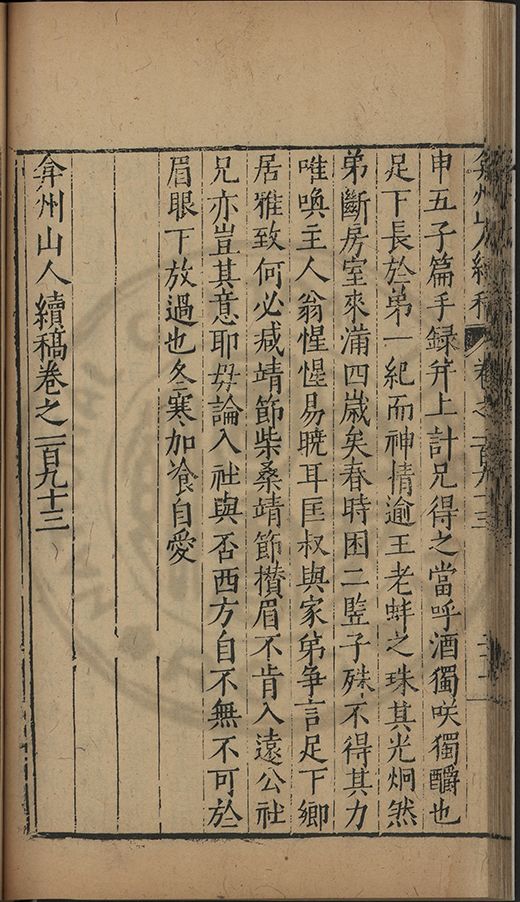 弇州山人續稿 卷之一百九十三
申五子篇手録并上計兄得之當呼酒獨咲獨釂也
足下長於弟一紀而神情逾王老蚌之珠其光炯然
弟斷房室來滿四嵗矣春時困二豎子殊不得其力
唯喚主人翁惺惺易曉耳匡叔與家弟爭言足下鄉
居雅致何必減靖節柴桑靖節攅眉不肯入遠公社
兄亦豈其意耶毋論入社與否西方自不無不可於
眉眼下放過也冬寒加飡自愛
弇州山人續稿卷之一百九十三